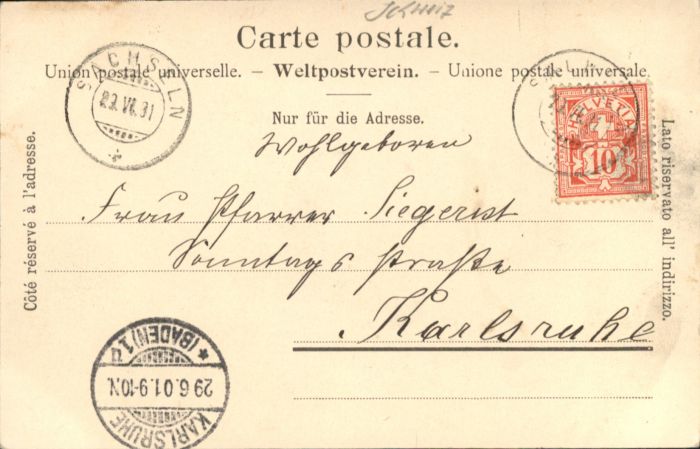 Schweiz
Carte postale.
Union postale universelle. – Weltpostverein. – Unione postale universale.
Nur für die Adresse.
SACHSELN
29.VI.
HELVETIA
10
Côté réservé à l'adresse.
Lato riservato all' indirizzo.
Wohlgeboren
Frau Pfarrer Siegrist
Sonntags straße
Karlsruhe
KARLSRUHE
29.6.01.9-10N.
* (BADEN) 1